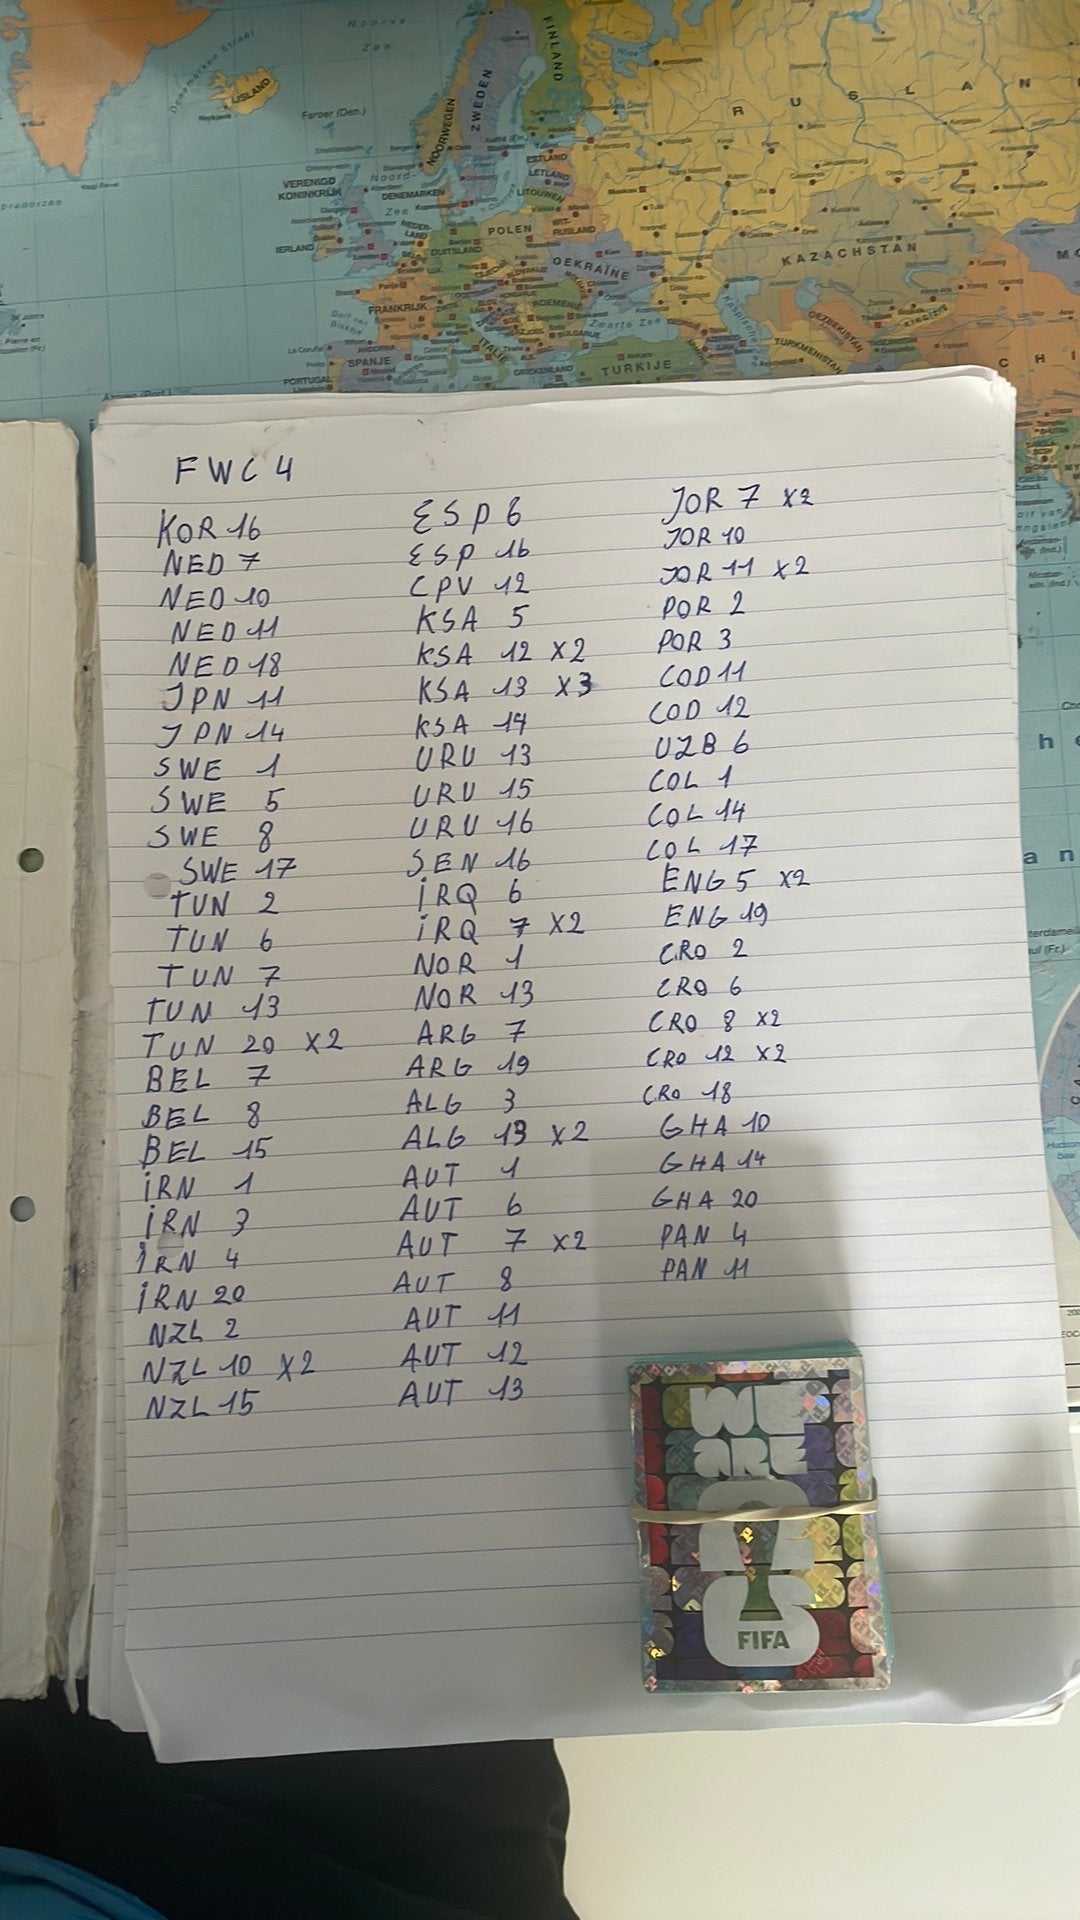 Noorse
Zee
Denemarken Straat
IJSLAND
Reykjavik
Faroer (Den.)
FINLAND
ZWEDEN
NOORWEGEN
RUSLAN
ESTLAND
LETLAND
LITOUWEN
VERENIGD
KONINKRIJK
Noord-
Zee
DENEMARKEN
IERLAND
NEDER-
LAND
DUITSLAND
POLEN
WIT-
RUSLAND
KAZACHSTAN
OEKRAÏNE
FRANKRIJK
ROEMENIË
ITALIË
Zwarte Zee
SPANJE
PORTUGAL
GRIEKENLAND
TURKIJE
OEZBEKISTAN
TURKMENISTAN
CHI
FWC 4
KOR 16
NED 7
NED 10
NED 11
NED 18
JPN 11
JPN 14
SWE 1
SWE 5
SWE 8
SWE 17
TUN 2
TUN 6
TUN 7
TUN 13
TUN 20 X2
BEL 7
BEL 8
BEL 15
iRN 1
iRN 3
iRN 4
iRN 20
NZL 2
NZL 10 X2
NZL 15
ESP 6
ESP 16
CPV 12
KSA 5
KSA 12 X2
KSA 13 X3
KSA 17
URU 13
URU 15
URU 16
SEN 16
iRQ 6
iRQ 7 X2
NOR 1
NOR 13
ARG 7
ARG 19
ALG 3
ALG 13 X2
AUT 1
AUT 6
AUT 7 X2
AUT 8
AUT 11
AUT 12
AUT 13
JOR 7 X2
JOR 10
JOR 11 X2
POR 2
POR 3
COD 11
COD 12
UZB 6
COL 1
COL 14
COL 17
ENG 5 X2
ENG 19
CRO 2
CRO 6
CRO 8 X2
CRO 12 X2
CRO 18
GHA 10
GHA 14
GHA 20
PAN 4
PAN 11
WE
ARE
26
FIFA